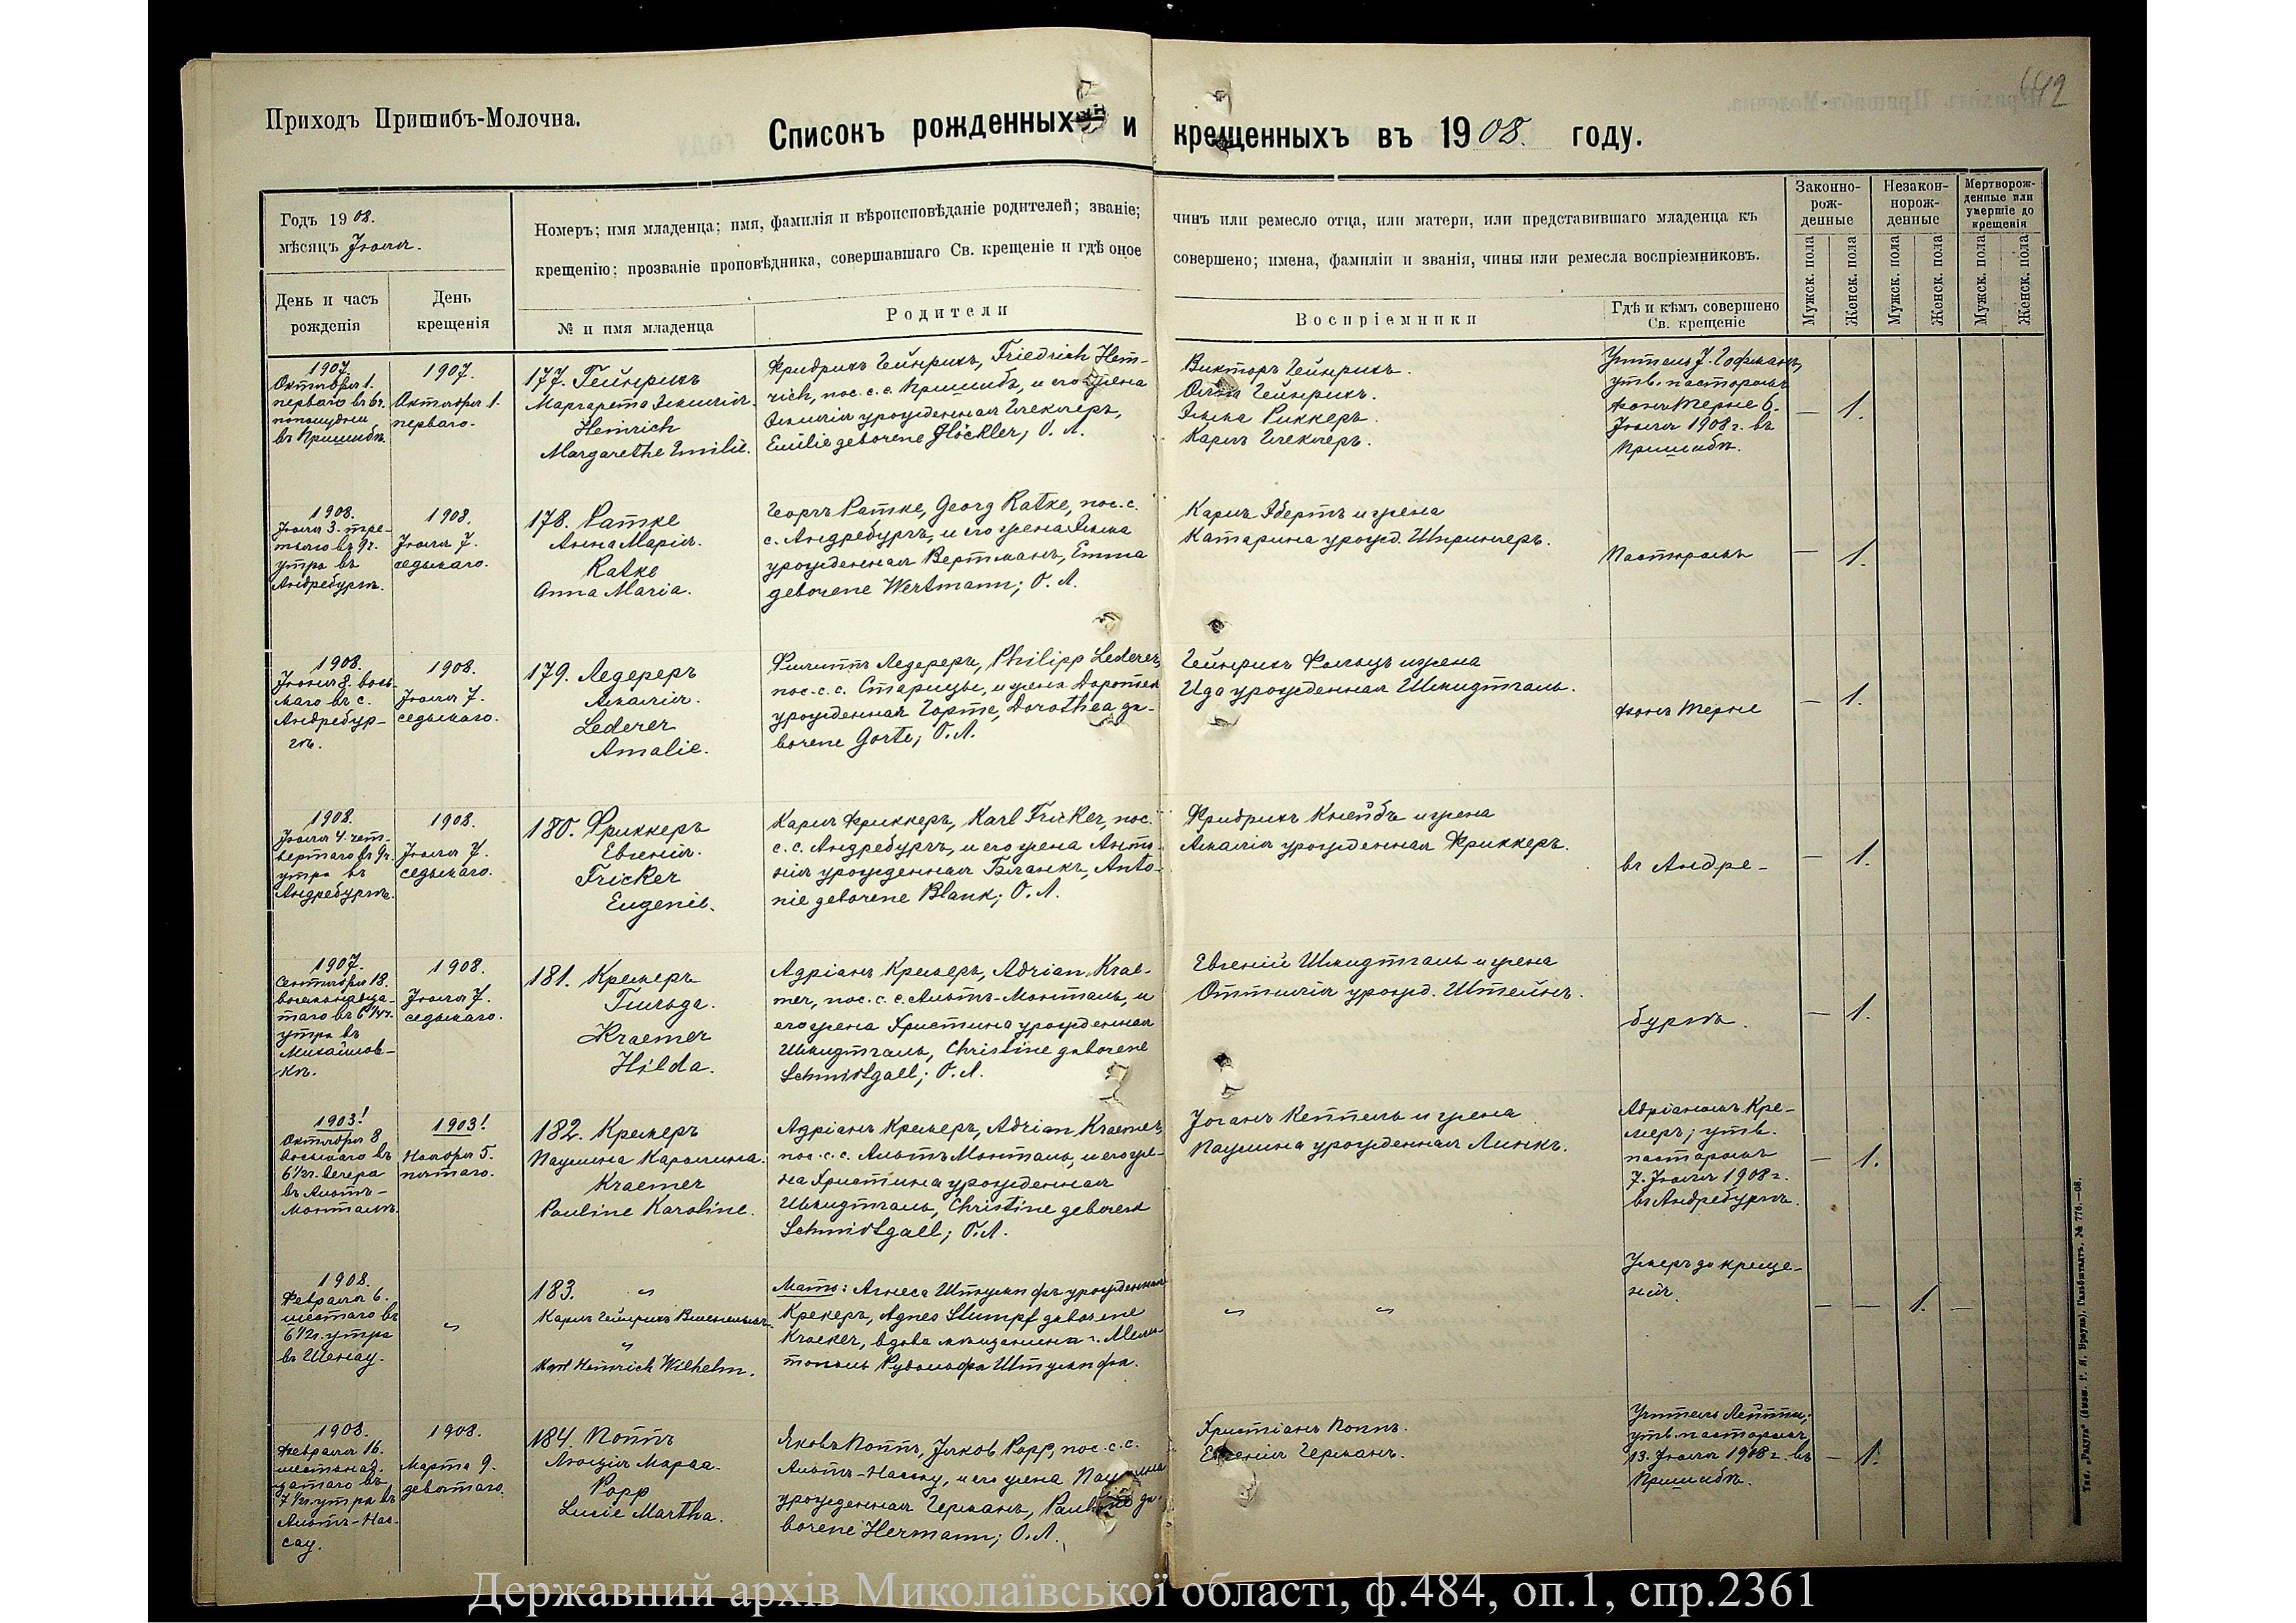 642
Приходъ Пришибъ-Молочна.
Списокъ рожденныхъ и крещенныхъ въ 1908. году.
Годъ 1908.
мѣсяцъ Іюля.
Номеръ; имя младенца; имя, фамилія и вѣроисповѣданіе родителей; званіе;
чинъ или ремесло отца, или матери, или представившаго младенца къ
крещенію; прозваніе проповѣдника, совершавшаго Св. крещеніе и гдѣ оное
совершено; имена, фамиліи и званія, чины или ремесла воспріемниковъ.
Законно-
рож-
денные
Незакон-
норож-
денные
Мертворож-
денные или
умершіе до
крещенія
День и часъ
рожденія
День
крещенія
№ и имя младенца
Родители
Воспріемники
Гдѣ и кѣмъ совершено
Св. крещеніе
Мужск. пола
Женск. пола
Мужск. пола
Женск. пола
Мужск. пола
Женск. пола
1907.
Октября 1.
перваго въ 6ч.
пополудни
въ Пришибѣ.
1907.
Октября 1.
перваго.
177. Гейнрихъ
Маргарета Эмилія.
Heinrich
Margarethe Emilie.
Фридрихъ Гейнрихъ, Friedrich Hein-
rich, пос. с. с. Пришибъ, и его жена
Эмилія урожденная Глеклеръ,
Emilie geborene Glöckler; О. Л.
Викторъ Гейнрихъ.
Ольга Гейнрихъ.
Эмма Риккеръ.
Карлъ Глеклеръ.
Учитель І. Гофманъ,
утв. пасторомъ
фонъ Терне 6.
Іюля 1908 г. въ
Пришибѣ.
— 1.
1908.
Іюля 3. тре-
тьяго въ 9ч.
утра въ
Андребургѣ.
1908.
Іюля 7.
седьмаго.
178. Ратке
Анна Марія.
Ratke
Anna Maria.
Георгъ Ратке, Georg Ratke, пос. с.
с. Андребургъ, и его жена Эмма
урожденная Вертманъ, Emma
geborene Wertmann; О. Л.
Карлъ Эбертъ и жена
Катарина урожд. Шпринглеръ.
Пасторомъ
— 1.
1908.
Іюня 8. вось-
маго въ с.
Андребур-
гѣ.
1908.
Іюля 7.
седьмаго.
179. Ледереръ
Амалія.
Lederer
Amalie.
Филиппъ Ледереръ, Philipp Lederer,
пос. с. с. Старицы, и жена Доротея
урожденная Горте, Dorothea ge-
borene Gorte; О. Л.
Гейнрихъ Фольцъ и жена
Ида урожденная Шмидтгаль.
фонъ Терне
— 1.
1908.
Іюля 4. чет-
вертаго въ 9ч.
утра въ
Андребургѣ.
1908.
Іюля 7.
седьмаго.
180. Фриккеръ
Евгенія.
Fricker
Eugenie.
Карлъ Фриккеръ, Karl Fricker, пос.
с. с. Андребургъ, и его жена Анто-
нія урожденная Бланкъ, Anto-
nie geborene Blank; О. Л.
Фридрихъ Кнейбъ и жена
Амалія урожденная Фриккеръ.
въ Андре-
— 1.
1907.
Сентября 18.
восемнадца-
таго въ 6 1/4ч.
утра въ
Михайлов-
кѣ.
1908.
Іюля 7.
седьмаго.
181. Кремеръ
Гильда.
Kraemer
Hilda.
Адріанъ Кремеръ, Adrian Krae-
mer, пос. с. с. Альтъ-Монталь, и
его жена Христина урожденная
Шмидтгаль, Christine geborene
Schmidtgall; О. Л.
Евгеній Шмидтгаль и жена
Оттилія урожд. Штейнъ.
бургѣ.
— 1.
1903!
Октября 8
восьмаго въ
6 1/2ч. вечера
въ Альтъ-
Монталѣ.
1903!
Ноября 5.
пятаго.
182. Кремеръ
Паулина Каролина.
Kraemer
Pauline Karoline.
Адріанъ Кремеръ, Adrian Kraemer,
пос. с. с. Альтъ Монталь, и его же-
на Христина урожденная
Шмидтгаль, Christine geborene
Schmidtgall; О. Л.
Іоганъ Кеппель и жена
Паулина урожденная Линкъ.
Адріаномъ Кре-
меръ; утв.
пасторомъ
7. Іюля 1908 г.
въ Андребургѣ.
— 1.
1908.
Февраля 6.
шестаго въ
6 1/2ч. утра
въ Шенау.
"
183. "
Карлъ Гейнрихъ Вильгельмъ.
"
Karl Heinrich Wilhelm.
Мать: Агнеса Штумпфъ урожденная
Крекеръ, Agnes Stumpf geborene
Kraeker, вдова мѣщанина г. Мели-
тополь Рудольфа Штумпфа.
" "
Умеръ до креще-
нія.
— — 1. —
1908.
Февраля 16.
шестнад-
цатаго въ
7 1/2ч. утра въ
Альтъ-Нас-
сау.
1908.
Марта 9.
девятаго.
184. Поппъ
Люція Марта.
Popp
Lucie Martha.
Яковъ Поппъ, Jakob Popp, пос. с. с.
Альтъ-Нассау, и его жена Паулина
урожденная Германъ, Pauline ge-
borene Hermann; О. Л.
Христіанъ Поппъ.
Евгенія Германъ.
Учитель
утв. пасторомъ
13. Іюля 1908 г. въ
Пришибѣ.
— 1.
Тип. „Радуга“ (бывш. Г. Я. Брауна), Гальбштадтъ. № 776.—08.
Державний архів Миколаївської області, ф.484, оп.1, спр.2361